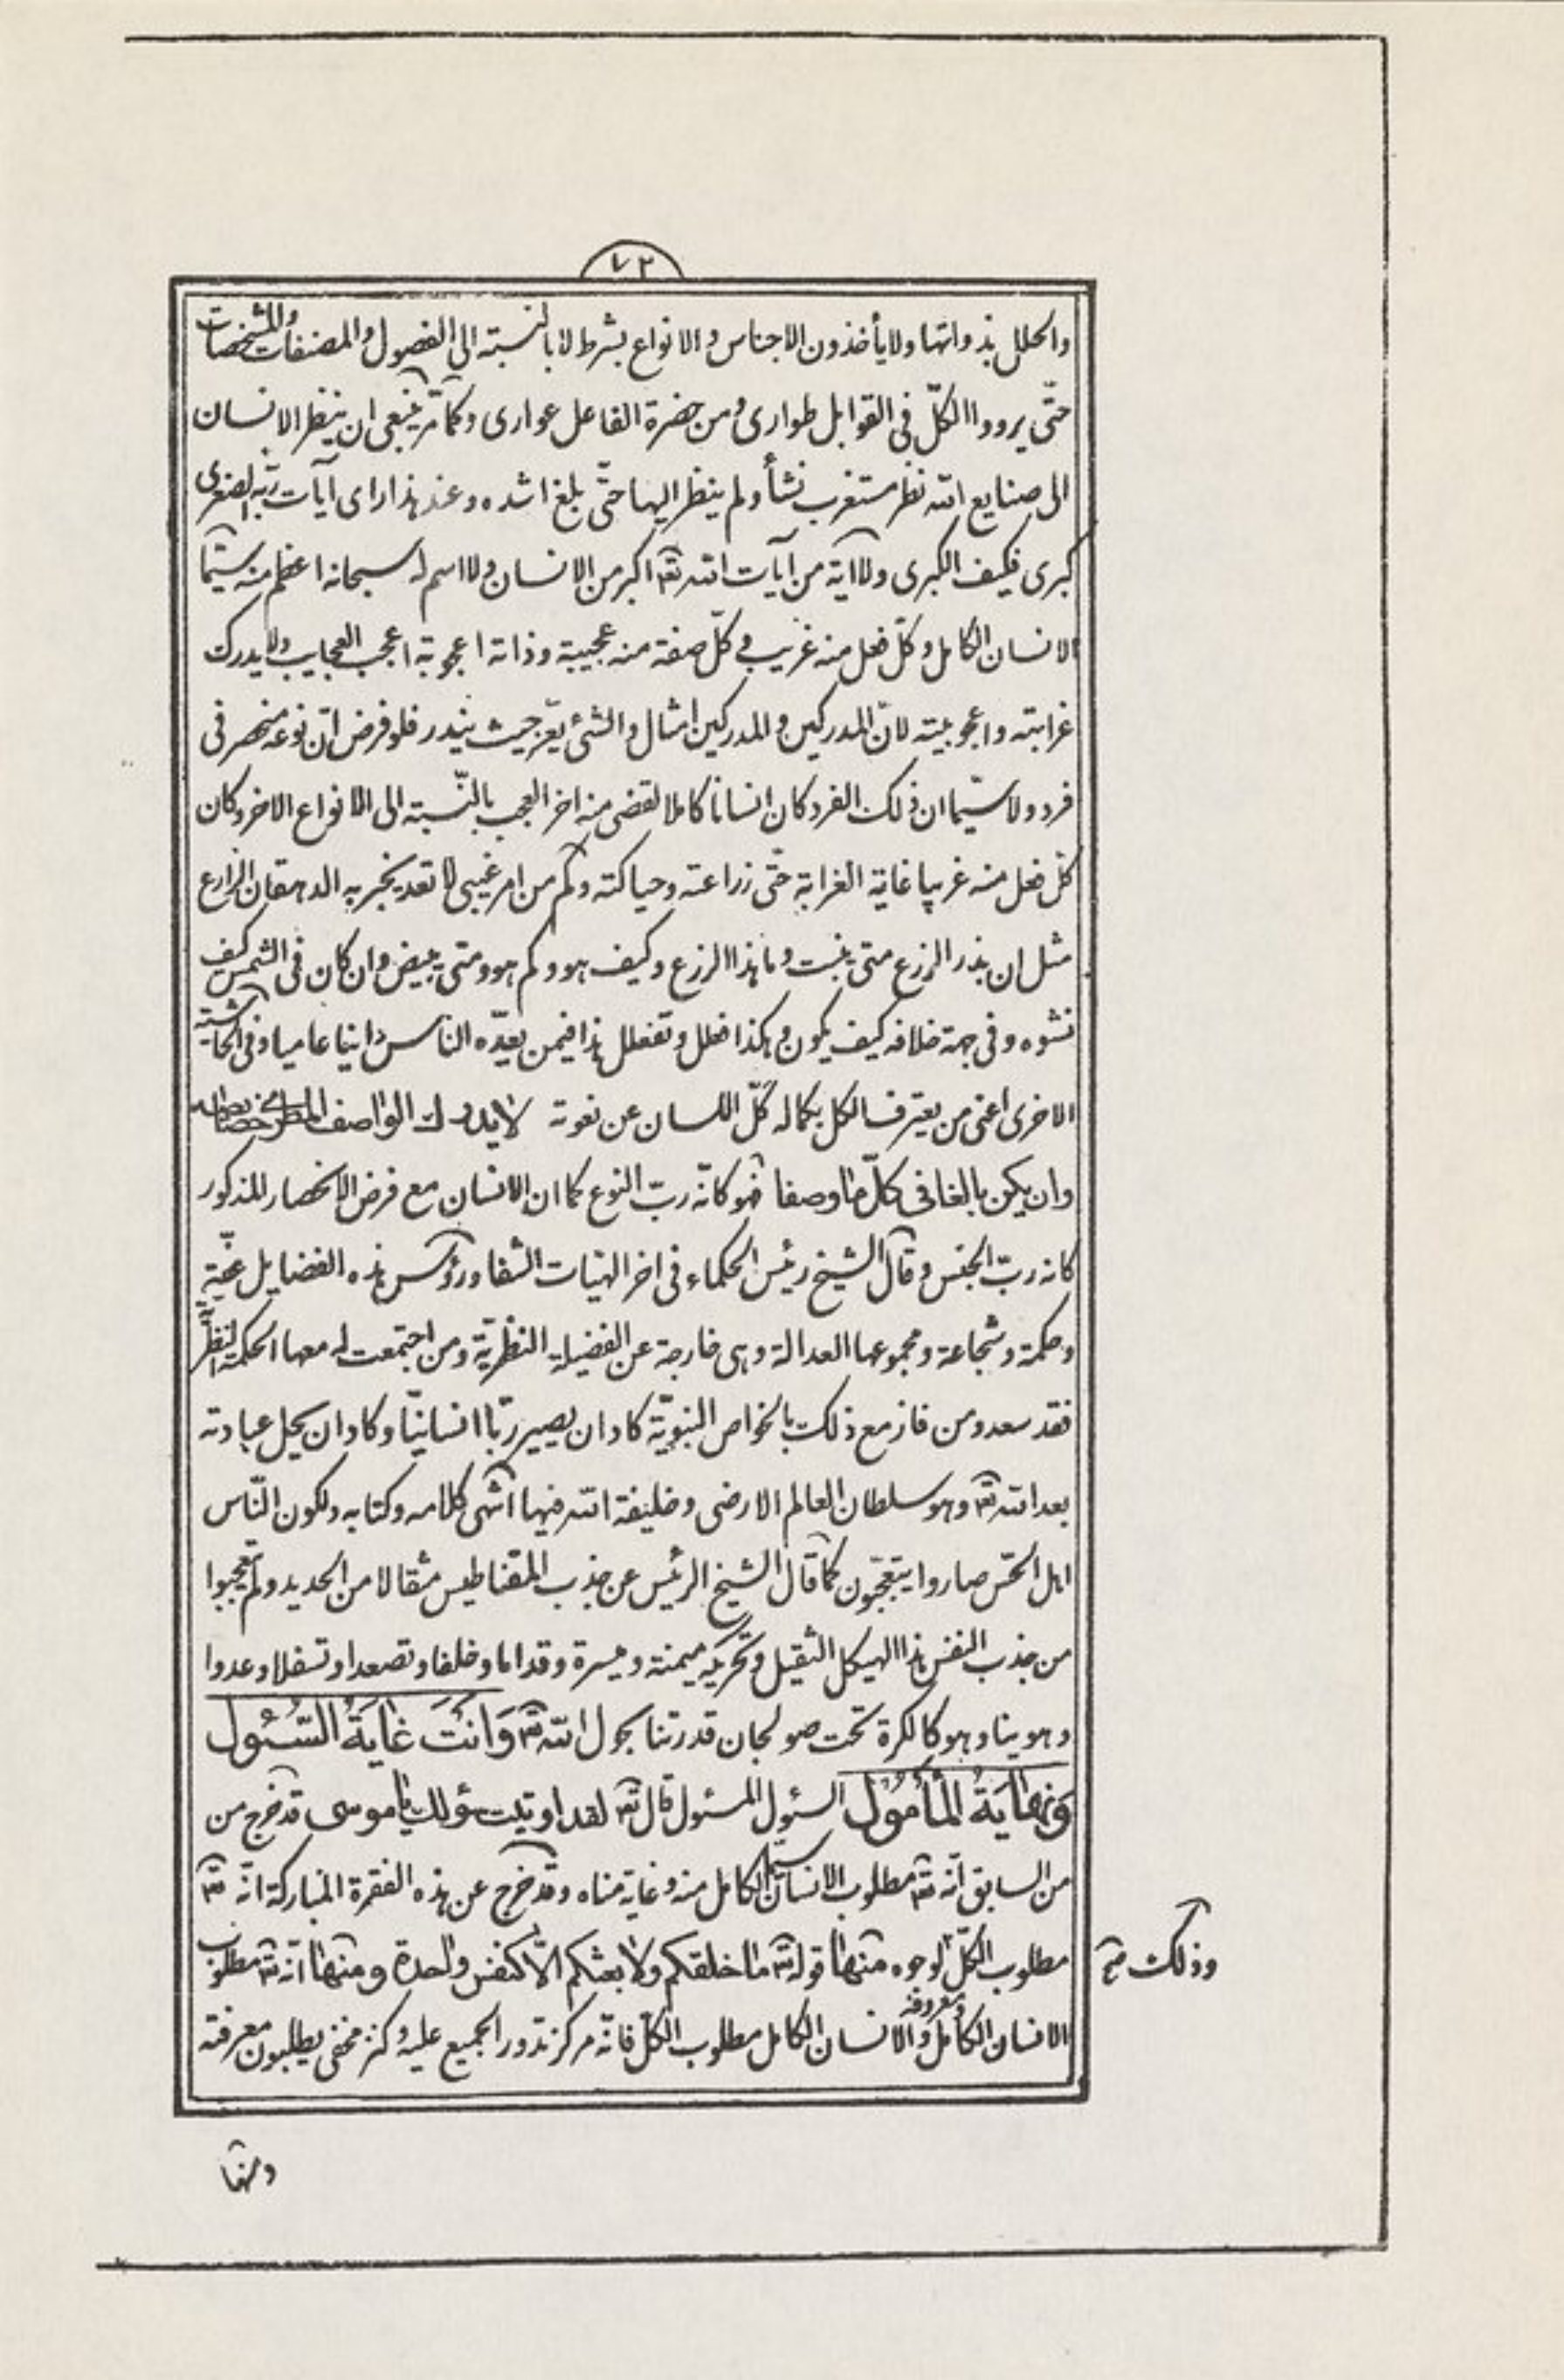 ٧٢
والحلل بذواتها ولا يأخذون الاجناس والانواع بشرط لا بالنسبة الى الفصول والمصنفات والمشخصات
حتّى يرووا الكلّ فى القوابل طوارى ومن حضرة الفاعل عوارى وكما مرّ ينبغى ان ينظر الانسان
الى صنايع الله نظر مستغرب نشأ ولم ينظر اليها حتّى بلغ اشده وعند هذا راى آيات ربّه الصغرى
كبرى فكيف الكبرى ولا آية من آيات الله تعالى اكبر من الانسان ولا اسم له سبحانه اعظم منه سيّما
الانسان الكامل وكلّ فعل منه غريب وكلّ صفة منه عجيبة وذاته اعجوبة اعجب العجايب ولا يدرك
غرابته واعجوبيته لانّ المدركين والمدركين امثال والشئ يعّز حيث يندر فلو فرض انّ نوعه منحصر فى
فرد ولا سيّما ان ذلك الفرد كان انسانا كاملا لقضى منه اخر العجب بالنّسبة الى الانواع الاخر وكان
كلّ فعل منه غريبا غاية الغرابة حتّى زراعته وحياكته وكم من امر غيبى لا تعد يخبر به الدهقان الزارع
مثل ان بذر الزرع متى ينبت وما هذا الزرع وكيف هو وكم هو ومتى يبيض وان كان فى الشمس كيف
نشوه وفى جهة خلافه كيف يكون وهكذا فعلل وتفعلل هذا فيمن يعدّه الناس دانيا عاميا وفى الحاشية
الاخرى اعنى من يعترف الكل بكماله كلّ اللسان عن نعوته لا يدرك الواصف المطرى خصائصه
وان يكن بالغا فى كلّ ما وصفا فهو كانّه ربّ النوع كما ان الانسان مع فرض الانحصار المذكور
كانه ربّ الجنس وقال الشيخ رئيس الحكماء فى اخر الهيّات الشفا ورؤس هذه الفضايل عفّة
وحكمة وشجاعة ومجموعها العدالة وهى خارجة عن الفضيلة النظريّة ومن اجتمعت له معها الحكمة النظريّة
فقد سعد ومن فاز مع ذلك بالخواص النبويّة كاد ان يصير ربّا انسانيّا وكاد ان يحل عبادته
بعد الله تعالى وهو سلطان العالم الارضى وخليفة الله فيها انتهى كلامه وكتابه ولكون النّاس
اهل الحسّ صاروا يتعجّبون كما قال الشيخ الرئيس عن جذب المقناطيس مثقالا من الحديد ولم يتعجبوا
من جذب النفس هذا الهيكل الثقيل وتحريكه ميمنة وميسرة وقداما وخلفا وتصعدا وتسفلا وعدوا
وهوينا وهو كالكرة تحت صولجان قدرتنا بحول الله تعالى وَاَنْتَ غايَةُ السُّئُول
وَنِهايَةُ المَأْمُول السئول المسئول قال تعالى لقد اوتيت سؤلك يا موسى قد خرج من
من السابق انّه تعالى مطلوب الانسان سيّما الكامل منه وغاية مناه وقد خرج عن هذه الفقرة المباركة انّه تعالى
مطلوب الكلّ لوجوه منها قوله تعالى ما خلقكم ولا بعثكم الّا كنفس واحدة ومنها انّه تعالى مطلوب
الانسان الكامل ومعروفه والانسان الكامل مطلوب الكلّ فانّه مركز تدور الجميع عليه وكنز مخفى يطلبون معرفته
وذلك صح
ومنها